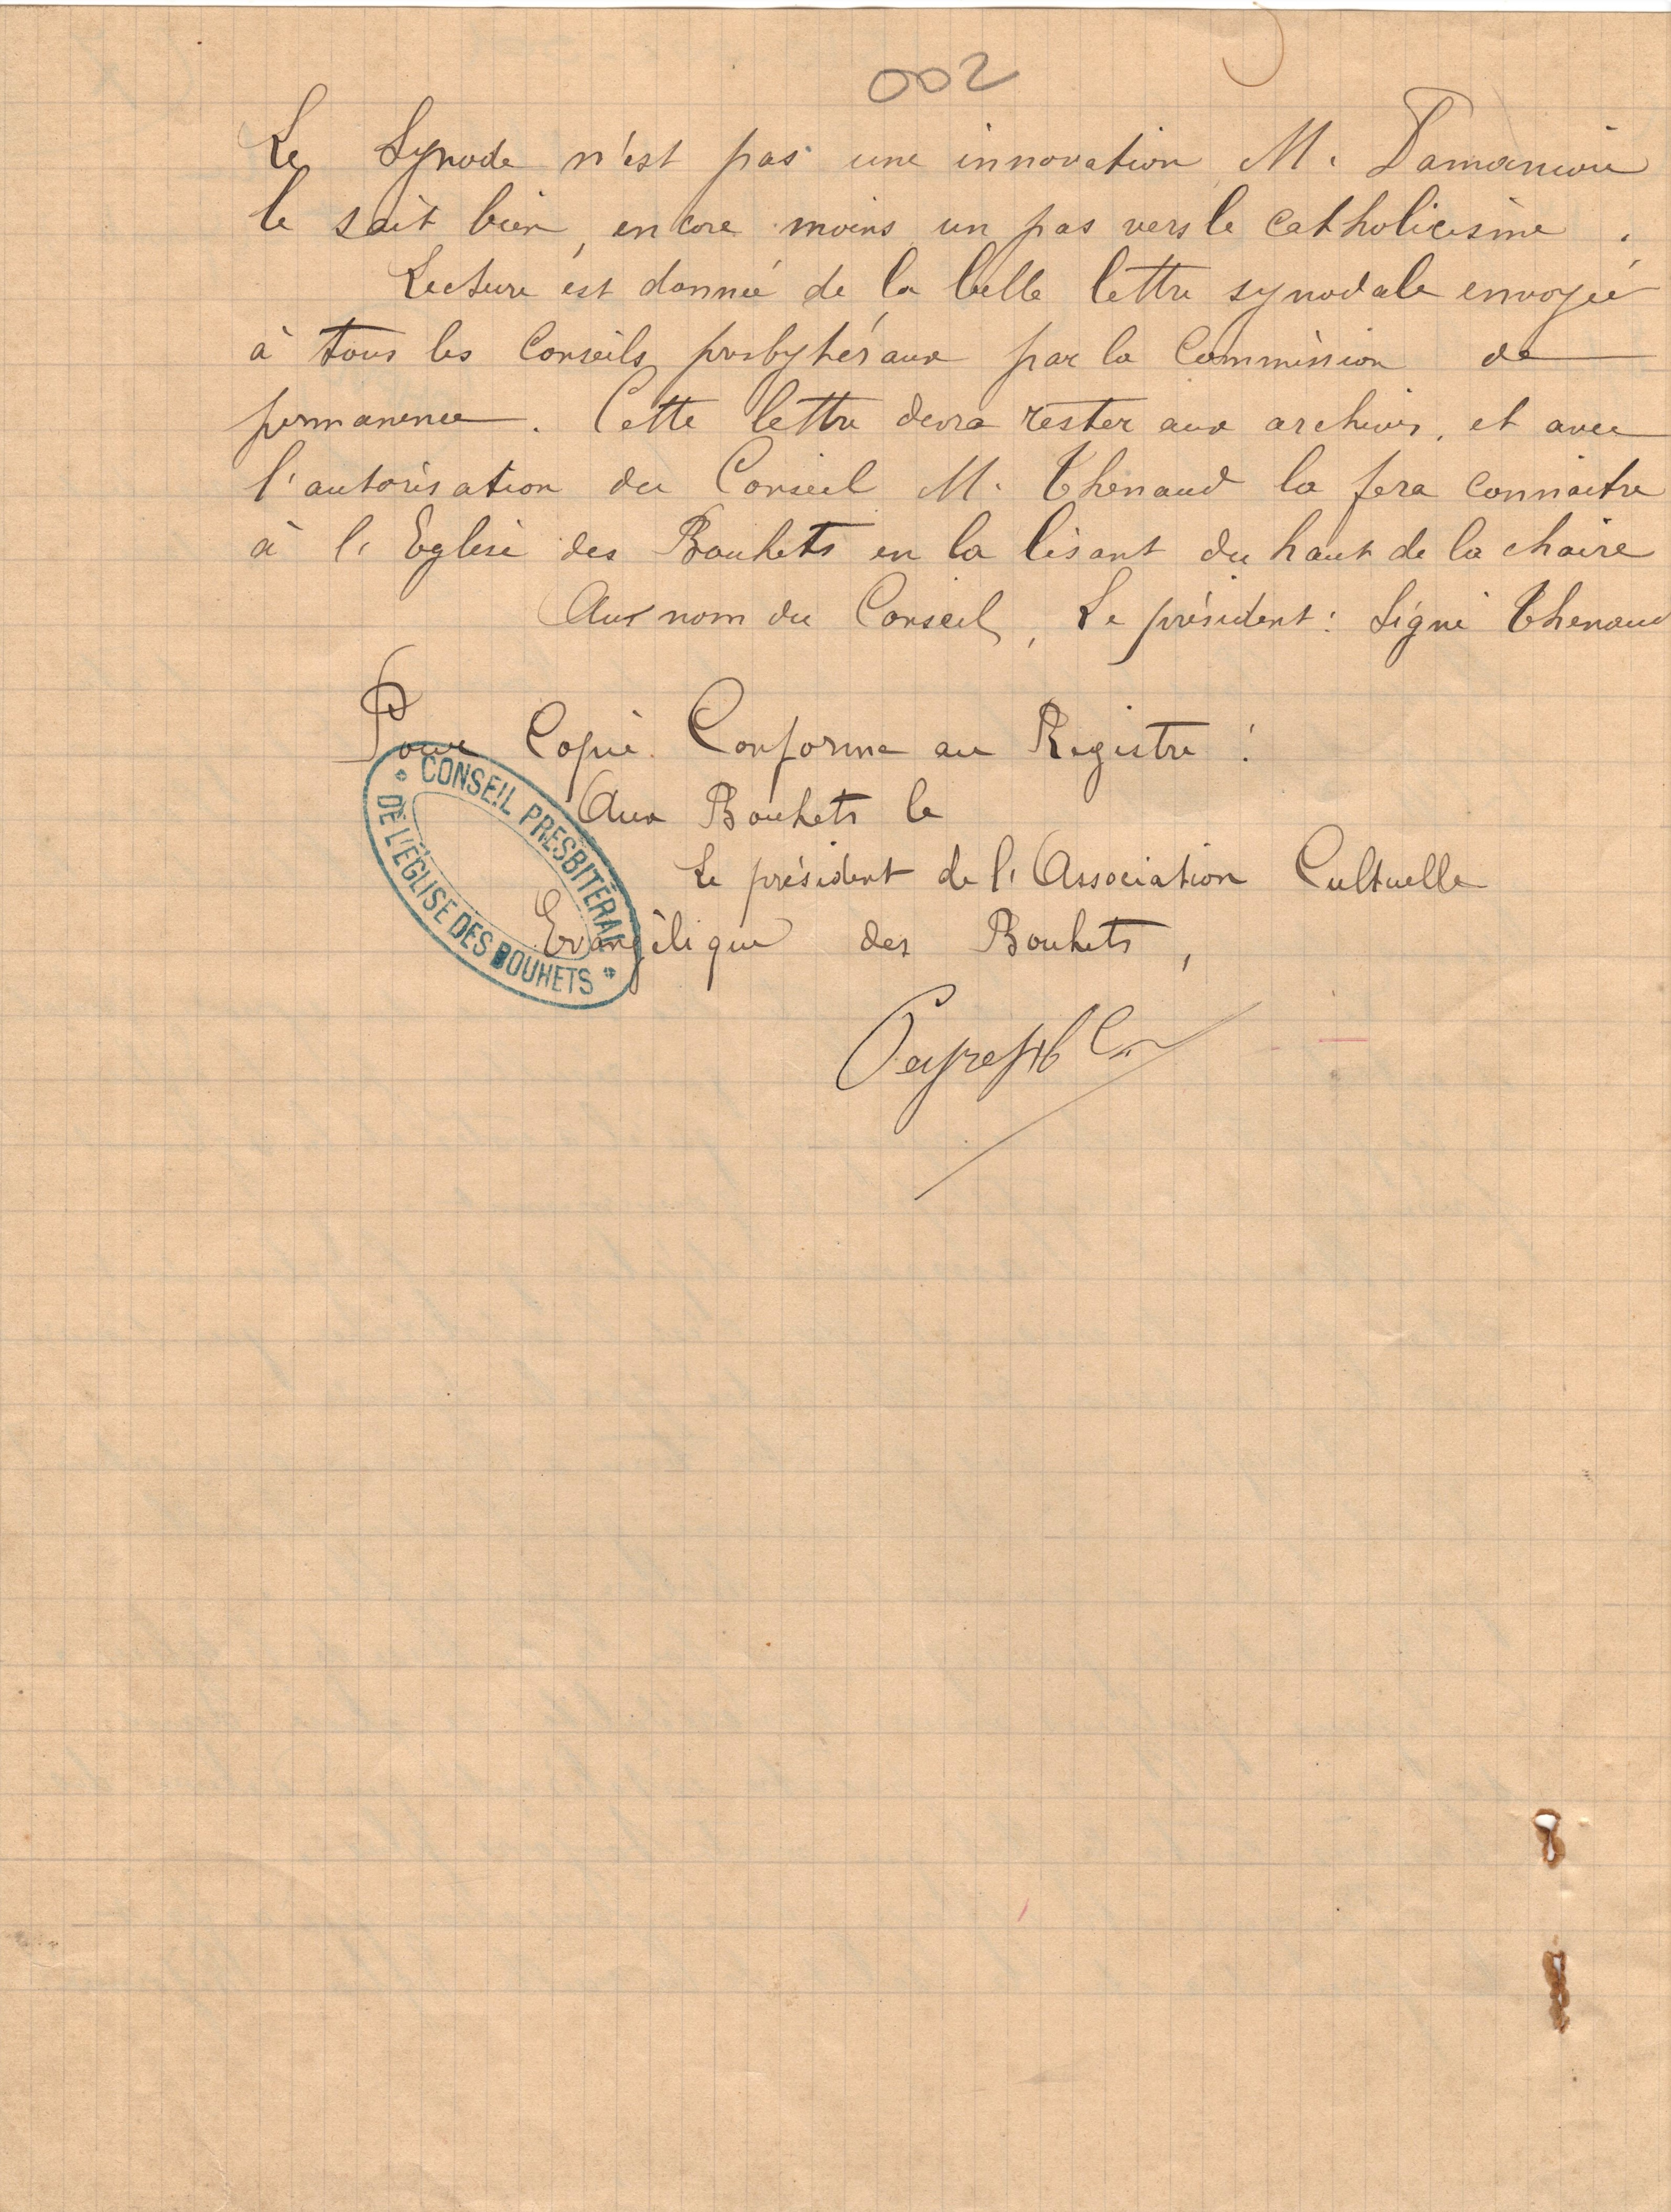 002
Le Synode n'est pas une innovation M.
le sait bien, encore moins un pas vers le Catholicisme.
Lecture est donnée de la belle lettre synodale envoyée
à tous les Conseils presbytéraux par la Commission de
permanence. Cette lettre devra rester aux archives, et avec
l'autorisation du Conseil M. Thenaud la fera connaitre
à l'Eglise des Bouhets en la lisant du haut de la chaire
Au nom du Conseil, Le président: Signé Thenaud
Pour Copie Conforme au Registre :
Aux Bouhets le
Le président de l'Association Cultuelle
Evangélique des Bouhets,
* CONSEIL PRESBITÉRAL *
DE L'ÉGLISE DES BOUHETS